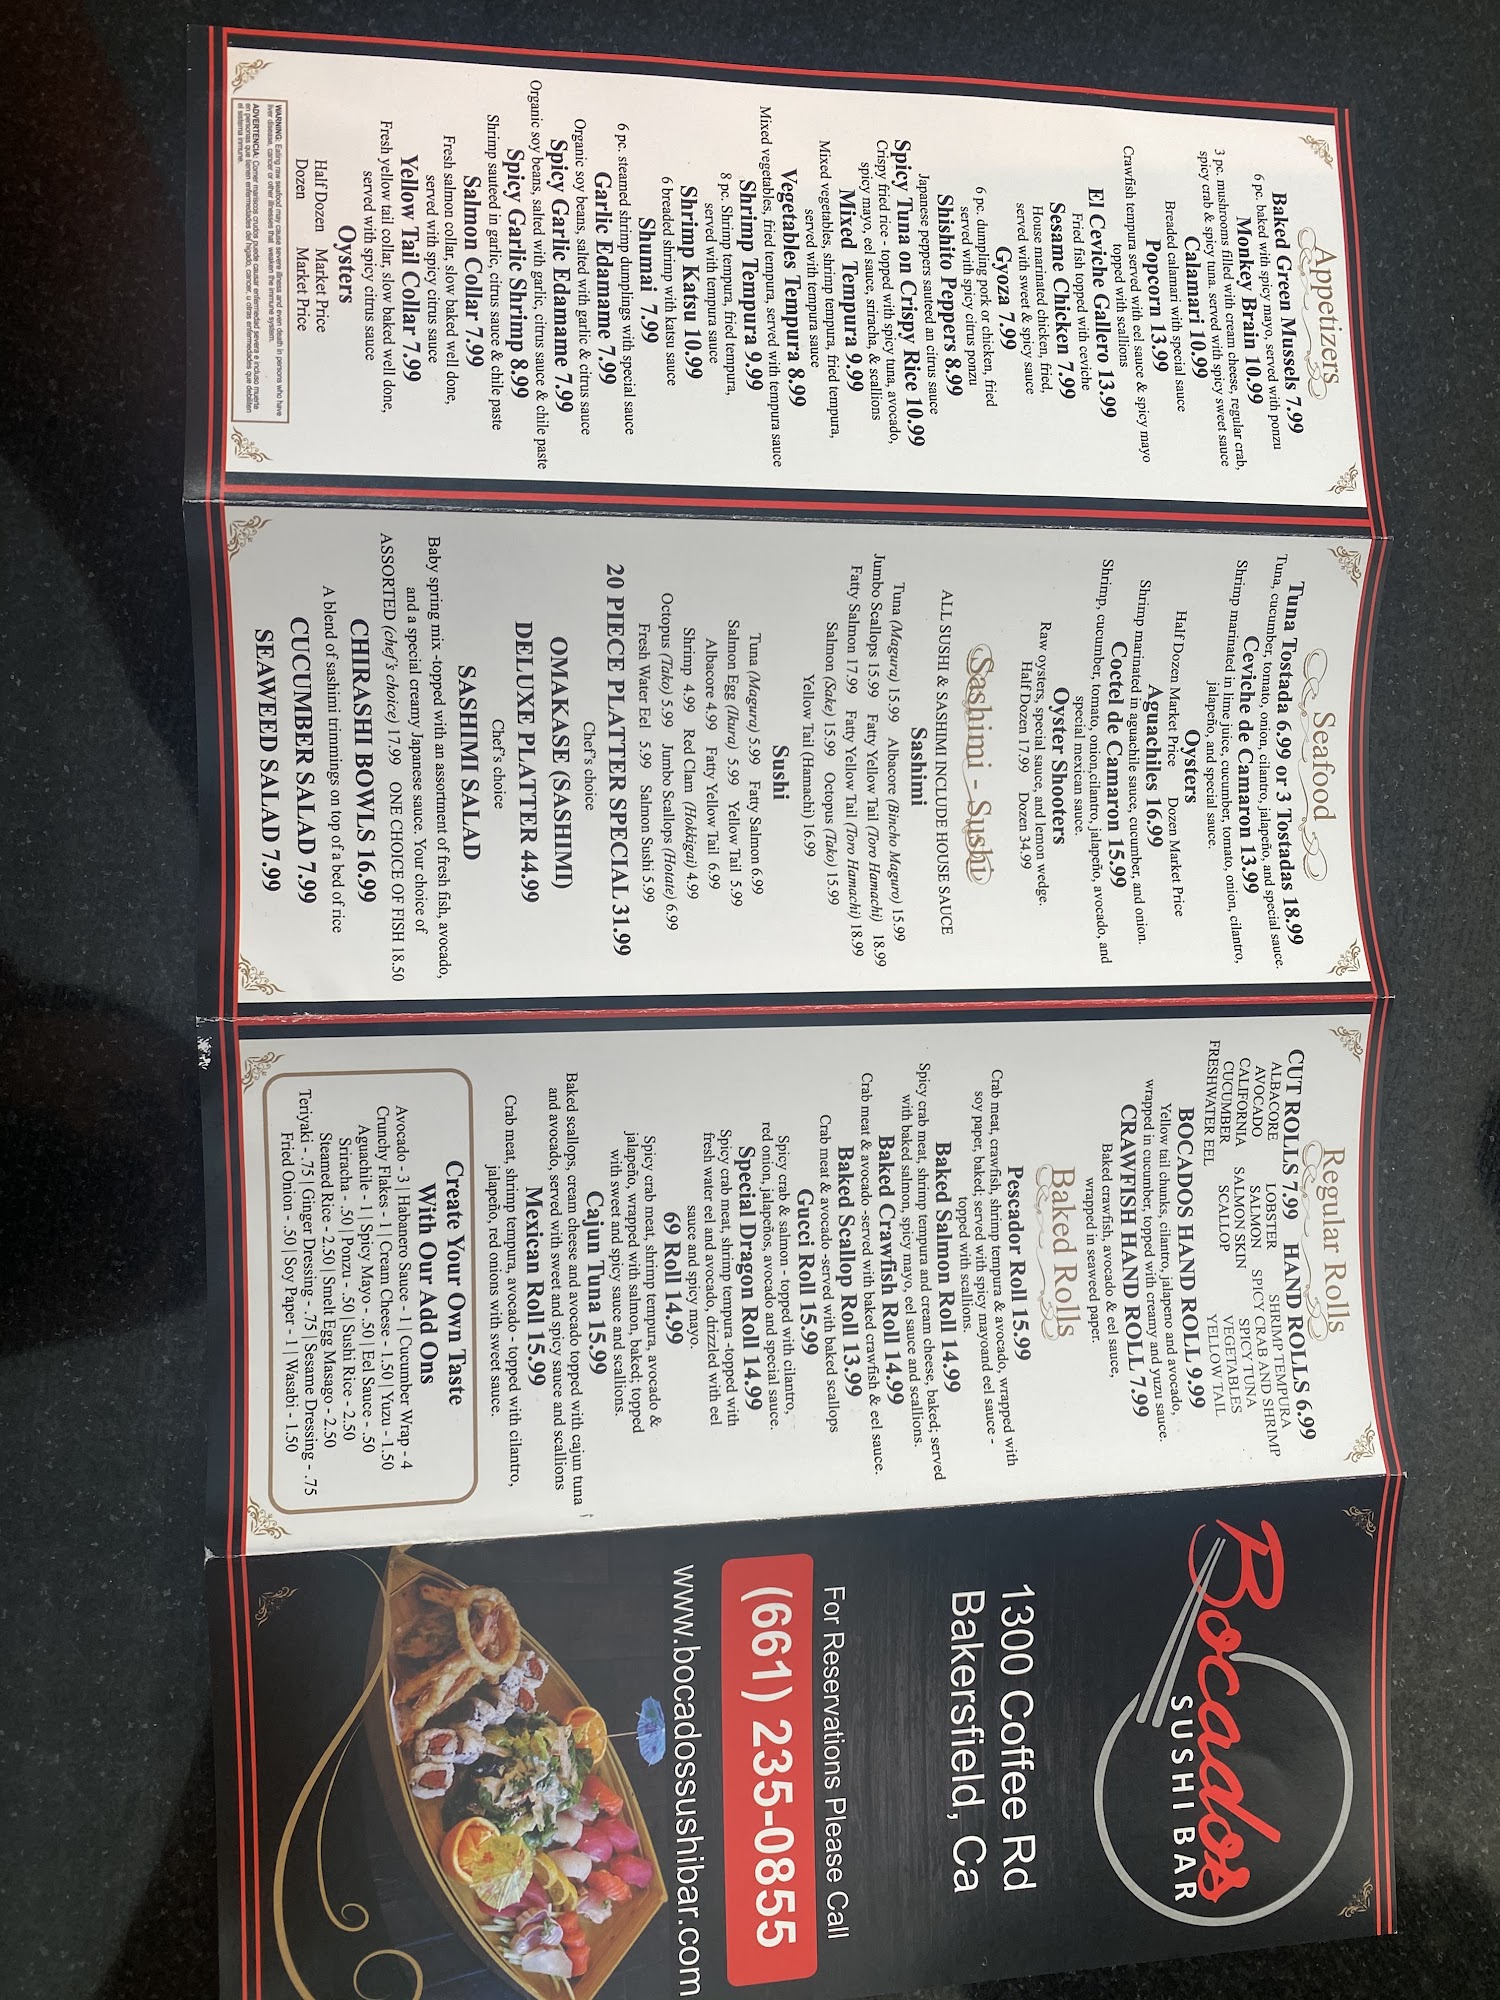 Appetizers
Baked Green Mussels 7.99
6 pc. baked with spicy mayo, served with ponzu
Monkey Brain 10.99
3 pc. mushrooms filled with cream cheese, regular crab,
spicy crab & spicy tuna. served with spicy sweet sauce
Calamari 10.99
Breaded calamari with special sauce
Popcorn 13.99
Crawfish tempura served with eel sauce & spicy mayo
topped with scallions
El Ceviche Gallero 13.99
Fried fish topped with ceviche
Sesame Chicken 7.99
House marinated chicken, fried,
served with sweet & spicy sauce
Gyoza 7.99
6 pc. dumpling pork or chicken, fried
served with spicy citrus ponzu
Shishito Peppers 8.99
Japanese peppers sauteed an citrus sauce
Spicy Tuna on Crispy Rice 10.99
Crispy fried rice - topped with spicy tuna, avocado,
spicy mayo, eel sauce, sriracha, & scallions
Mixed Tempura 9.99
Mixed vegetables, shrimp tempura, fried tempura,
served with tempura sauce
Vegetables Tempura 8.99
Mixed vegetables, fried tempura, served with tempura sauce
Shrimp Tempura 9.99
8 pc. Shrimp tempura, fried tempura,
served with tempura sauce
Shrimp Katsu 10.99
6 breaded shrimp with katsu sauce
Shumai 7.99
6 pc. steamed shrimp dumplings with special sauce
Garlic Edamame 7.99
Organic soy beans, salted with garlic & citrus sauce
Spicy Garlic Edamame 7.99
Organic soy beans, salted with garlic, citrus sauce & chile paste
Spicy Garlic Shrimp 8.99
Shrimp sauteed in garlic, citrus sauce & chile paste
Salmon Collar 7.99
Fresh salmon collar, slow baked well done,
served with spicy citrus sauce
Yellow Tail Collar 7.99
Fresh yellow tail collar, slow baked well done,
served with spicy citrus sauce
Oysters
Half Dozen Market Price
Dozen Market Price
WARNING: Eating raw seafood may cause severe illness and even death in persons who have
liver disease, cancer or other illnesses that weaken the immune system.
ADVERTENCIA: Comer mariscos crudos puede causar enfermedad severa e incluso muerte
en personas que tienen enfermedades del higado, cancer, u otras enfermedades que debiliten
el sistema inmune.
Seafood
Tuna Tostada 6.99 or 3 Tostadas 18.99
Tuna, cucumber, tomato, onion, cilantro, jalapeño, and special sauce.
Ceviche de Camaron 13.99
Shrimp marinated in lime juice, cucumber, tomato, onion, cilantro,
jalapeño, and special sauce.
Oysters
Half Dozen Market Price Dozen Market Price
Aguachiles 16.99
Shrimp marinated in aguachile sauce, cucumber, and onion.
Coctel de Camaron 15.99
Shrimp, cucumber, tomato, onion,cilantro, jalapeño, avocado, and
special mexican sauce.
Oyster Shooters
Raw oysters, special sauce, and lemon wedge.
Half Dozen 17.99 Dozen 34.99
Sashimi - Sushi
ALL SUSHI & SASHIMI INCLUDE HOUSE SAUCE
Sashimi
Tuna (Magura) 15.99 Albacore (Bincho Maguro) 15.99
Jumbo Scallops 15.99 Fatty Yellow Tail (Toro Hamachi) 18.99
Fatty Salmon 17.99 Fatty Yellow Tail (Toro Hamachi) 18.99
Salmon (Sake) 15.99 Octopus (Tako) 15.99
Yellow Tail (Hamachi) 16.99
Sushi
Tuna (Magura) 5.99 Fatty Salmon 6.99
Salmon Egg (Ikura) 5.99 Yellow Tail 5.99
Albacore 4.99 Fatty Yellow Tail 6.99
Shrimp 4.99 Red Clam (Hokkigai) 4.99
Octopus (Tako) 5.99 Jumbo Scallops (Hotate) 6.99
Fresh Water Eel 5.99 Salmon Sushi 5.99
20 PIECE PLATTER SPECIAL 31.99
Chef's choice
OMAKASE (SASHIMI)
DELUXE PLATTER 44.99
Chef's choice
SASHIMI SALAD
Baby spring mix -topped with an assortment of fresh fish, avocado,
and a special creamy Japanese sauce. Your choice of
ASSORTED (chef's choice) 17.99 ONE CHOICE OF FISH 18.50
CHIRASHI BOWLS 16.99
A blend of sashimi trimmings on top of a bed of rice
CUCUMBER SALAD 7.99
SEAWEED SALAD 7.99
Regular Rolls
CUT ROLLS 7.99 HAND ROLLS 6.99
ALBACORE LOBSTER SHRIMP TEMPURA
AVOCADO SALMON SPICY CRAB AND SHRIMP
CALIFORNIA SALMON SKIN SPICY TUNA
CUCUMBER SCALLOP VEGETABLES
FRESHWATER EEL YELLOW TAIL
BOCADOS HAND ROLL 9.99
Yellow tail chunks, cilantro, jalapeno and avocado,
wrapped in cucumber, topped with creamy and yuzu sauce.
CRAWFISH HAND ROLL 7.99
Baked crawfish, avocado & eel sauce,
wrapped in seaweed paper.
Baked Rolls
Pescador Roll 15.99
Crab meat, crawfish, shrimp tempura & avocado, wrapped with
soy paper, baked; served with spicy mayoand eel sauce -
topped with scallions.
Baked Salmon Roll 14.99
Spicy crab meat, shrimp tempura and cream cheese, baked; served
with baked salmon, spicy mayo, eel sauce and scallions.
Baked Crawfish Roll 14.99
Crab meat & avocado -served with baked crawfish & eel sauce.
Baked Scallop Roll 13.99
Crab meat & avocado -served with baked scallops
Gucci Roll 15.99
Spicy crab & salmon - topped with cilantro,
red onion, jalapeños, avocado and special sauce.
Special Dragon Roll 14.99
Spicy crab meat, shrimp tempura -topped with
fresh water eel and avocado, drizzled with eel
sauce and spicy mayo.
69 Roll 14.99
Spicy crab meat, shrimp tempura, avocado &
jalapeño, wrapped with salmon, baked; topped
with sweet and spicy sauce and scallions.
Cajun Tuna 15.99
Baked scallops, cream cheese and avocado topped with cajun tuna
and avocado, served with sweet and spicy sauce and scallions
Mexican Roll 15.99
Crab meat, shrimp tempura, avocado - topped with cilantro,
jalapeño, red onions with sweet sauce.
Create Your Own Taste
With Our Add Ons
Avocado - 3 | Habanero Sauce - 1 | Cucumber Wrap - 4
Crunchy Flakes - 1 | Cream Cheese - 1.50 | Yuzu - 1.50
Aguachile - 1 | Spicy Mayo - .50 | Eel Sauce - .50
Sriracha - .50 | Ponzu - .50 | Sushi Rice - 2.50
Steamed Rice - 2.50 | Smelt Egg Masago - 2.50
Teriyaki - .75 | Ginger Dressing - .75 | Sesame Dressing - .75
Fried Onion - .50 | Soy Paper - 1 | Wasabi - 1.50
Bocados
SUSHI BAR
1300 Coffee Rd
Bakersfield, Ca
For Reservations Please Call
(661) 235-0855
www.bocadossushibar.com